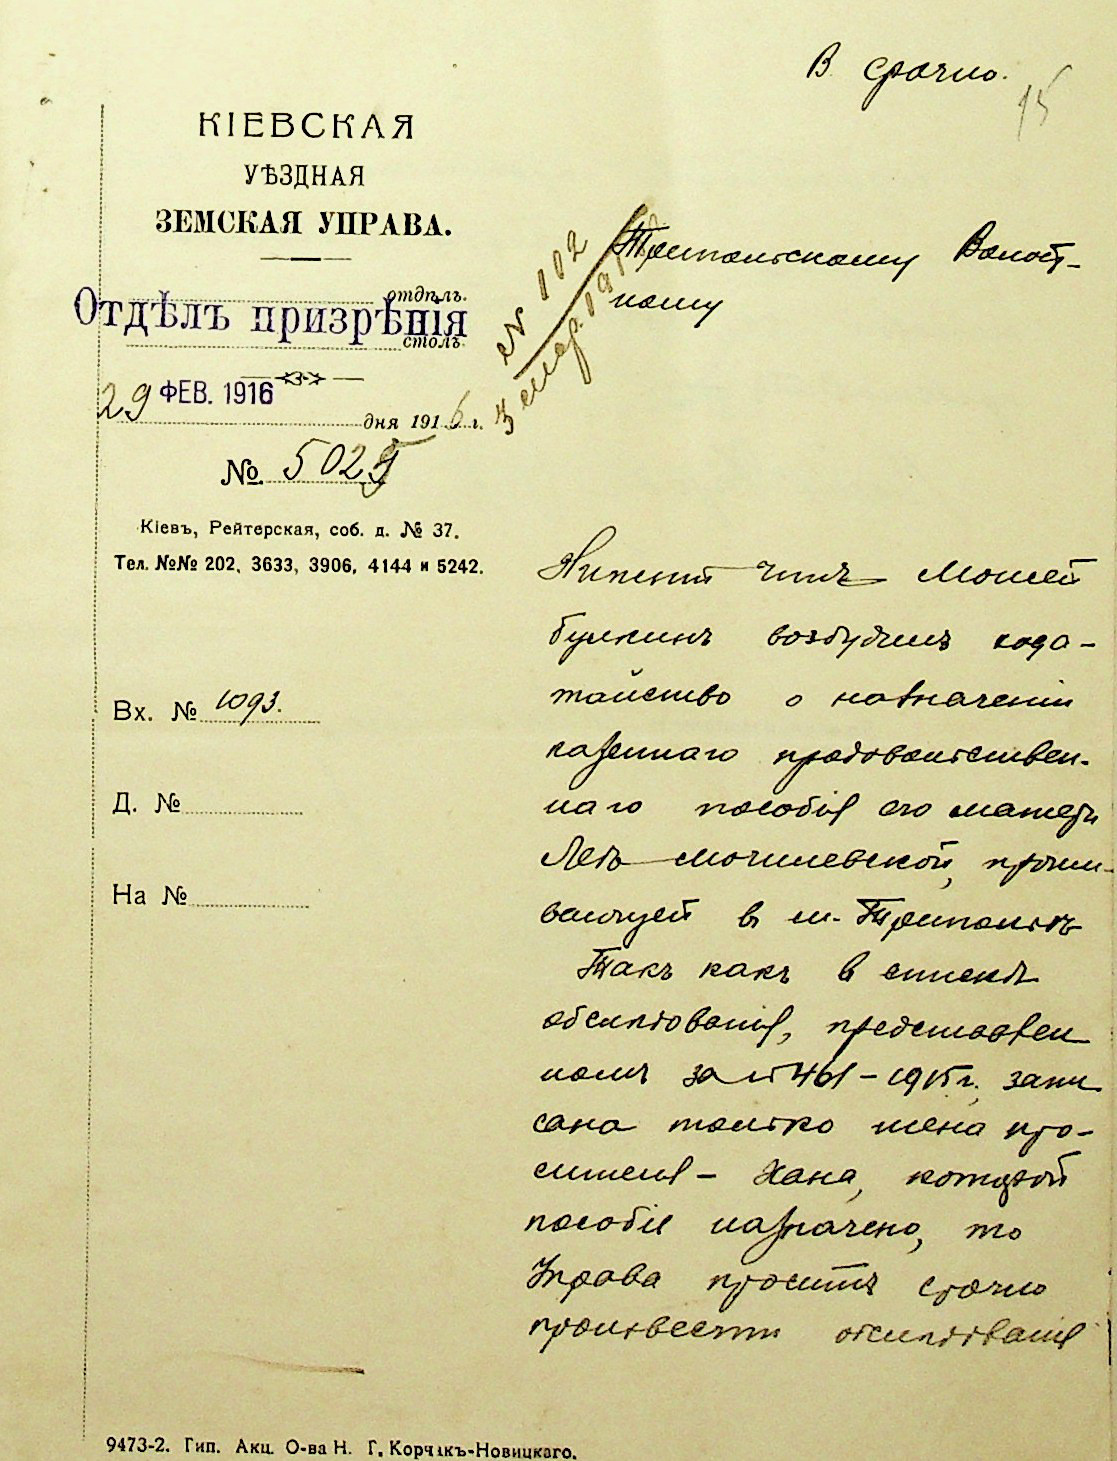 В. срочно.
15
КІЕВСКАЯ
УѢЗДНАЯ
ЗЕМСКАЯ УПРАВА.
отдѣлъ.
Отдѣлъ призрѣнія
столъ.
29 ФЕВ. 1916
дня 1916 г.
№ 5025
Кіевъ, Рейтерская, соб. д. № 37.
Тел. №№ 202, 3633, 3906, 4144 и 5242.
Вх. № 1093.
Д. №
На №
№ 102
3 мар. 191
Трипольскому Волост-
ному
Нижній чинъ Мошей
возбудилъ хода-
тайство о назначеніи
казеннаго продовольствен-
наго пособія его матери
Леѣ Могилевской, прожи-
вающей в м. Трипольѣ
Такъ какъ в спискѣ
обслѣдованія, представлен
номъ за № 461 – 1915 г. запи
сана только жена про-
сителя – Хана, которой
пособіе назначено, то
Управа проситъ срочно
произвести обслѣдованіе
9473-2. Тип. Акц. О-ва Н. Т. Корчакъ-Новицкаго.